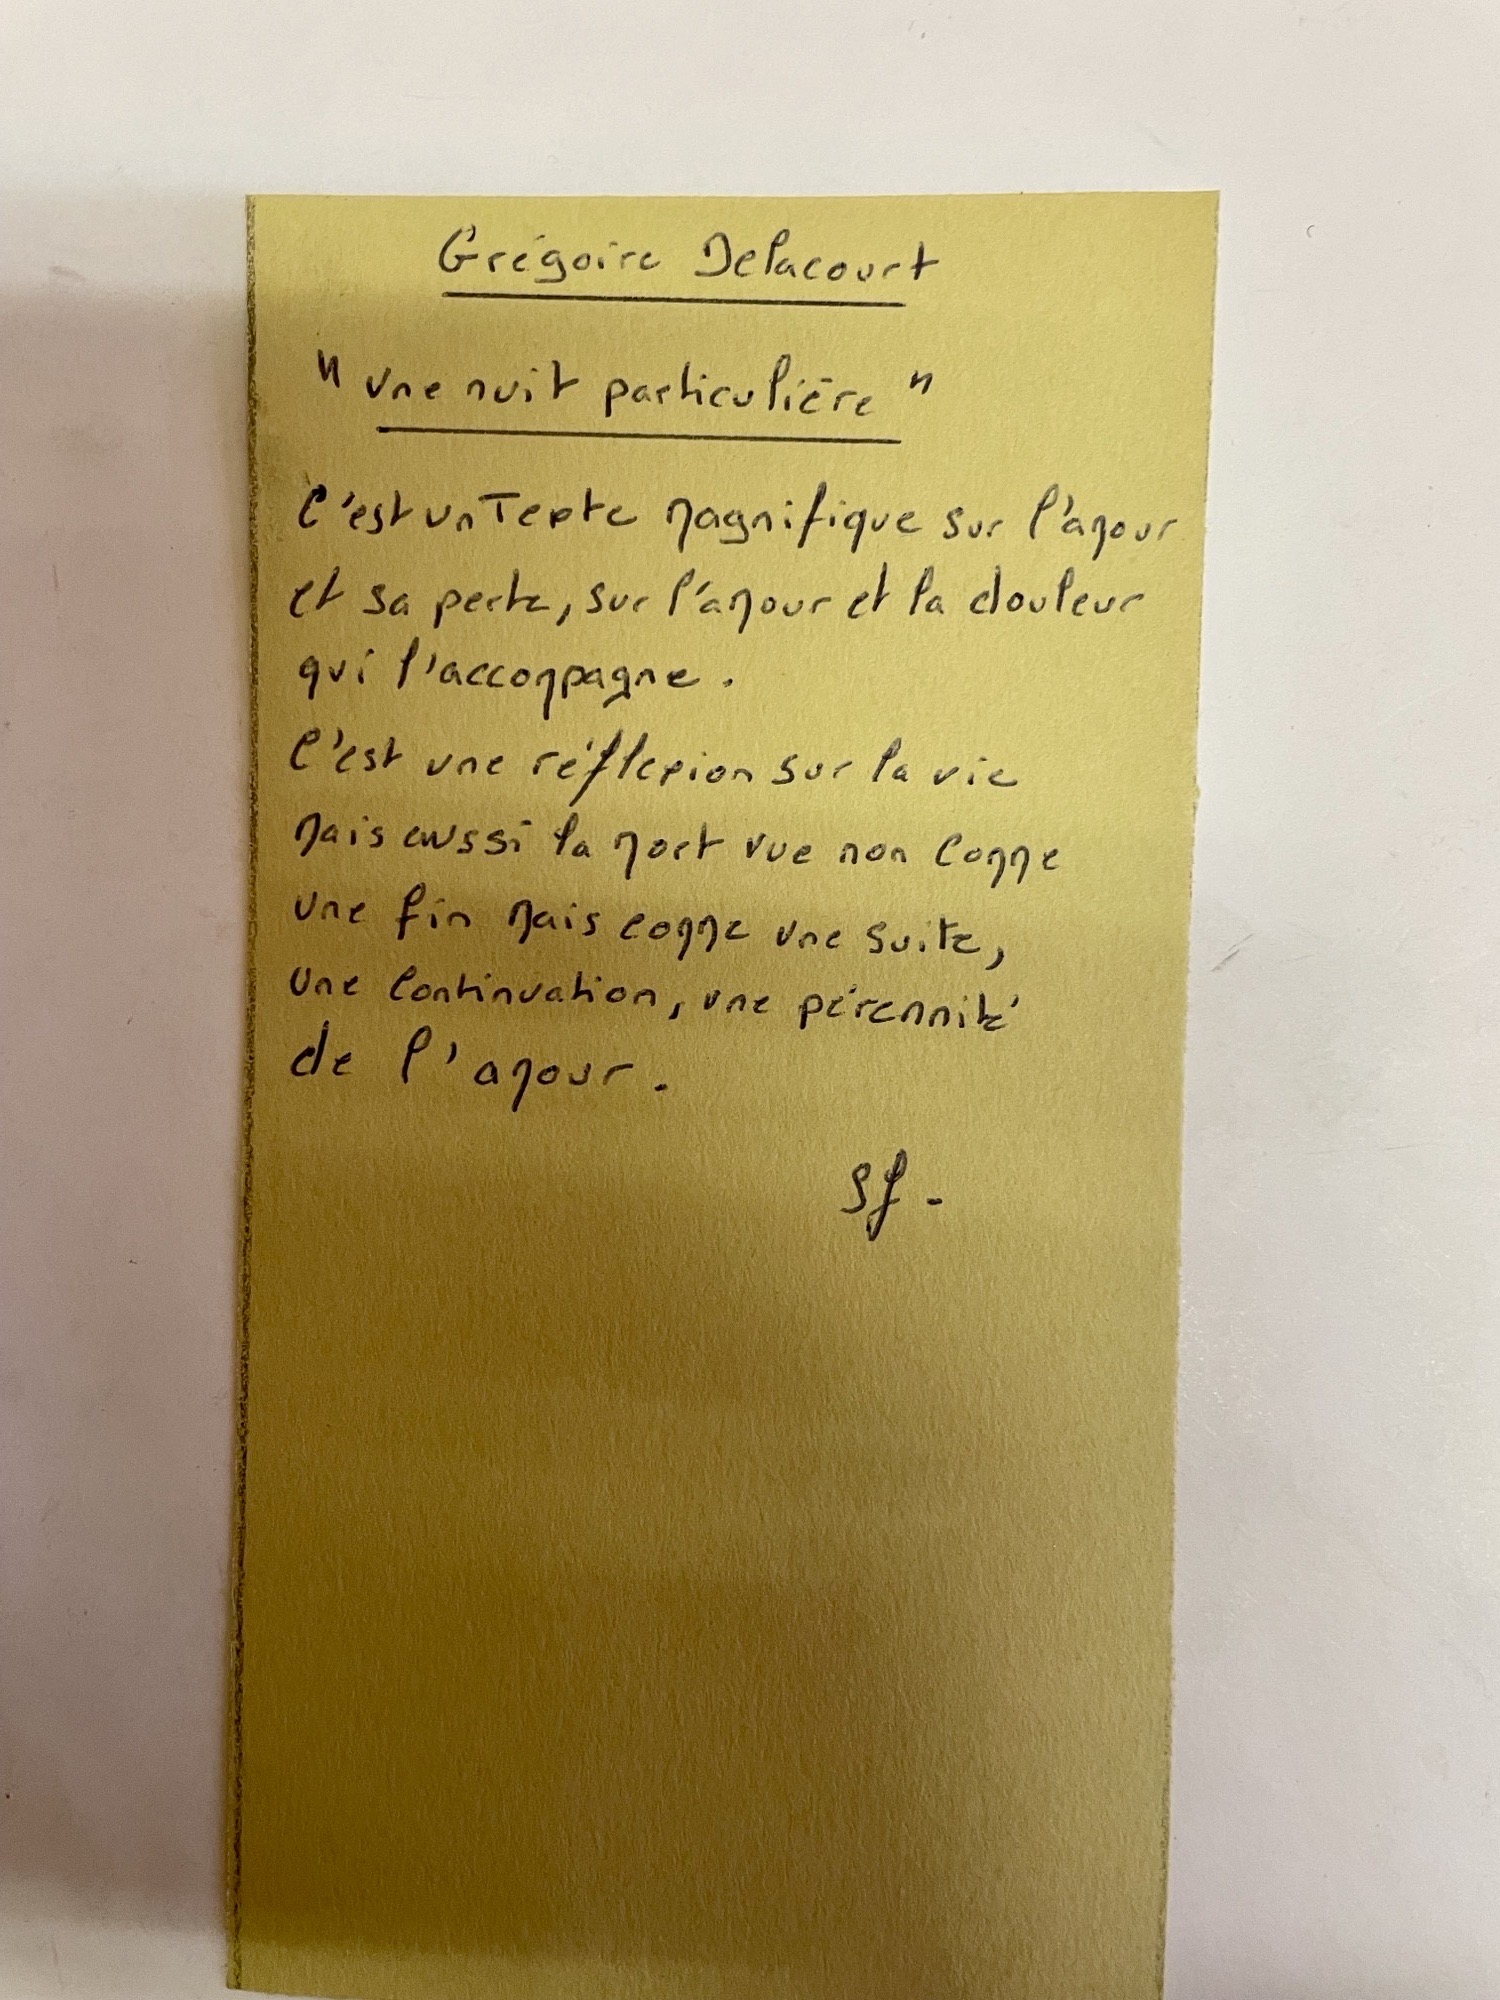 Grégoire Delacourt
"Une nuit particulière"
C'est un Texte magnifique sur l'amour
et sa perte, sur l'amour et la douleur
qui l'accompagne.
C'est une réflexion sur la vie
mais aussi la mort vue non comme
une fin mais comme une suite,
une continuation, une pérennité
de l'amour.
Sf -